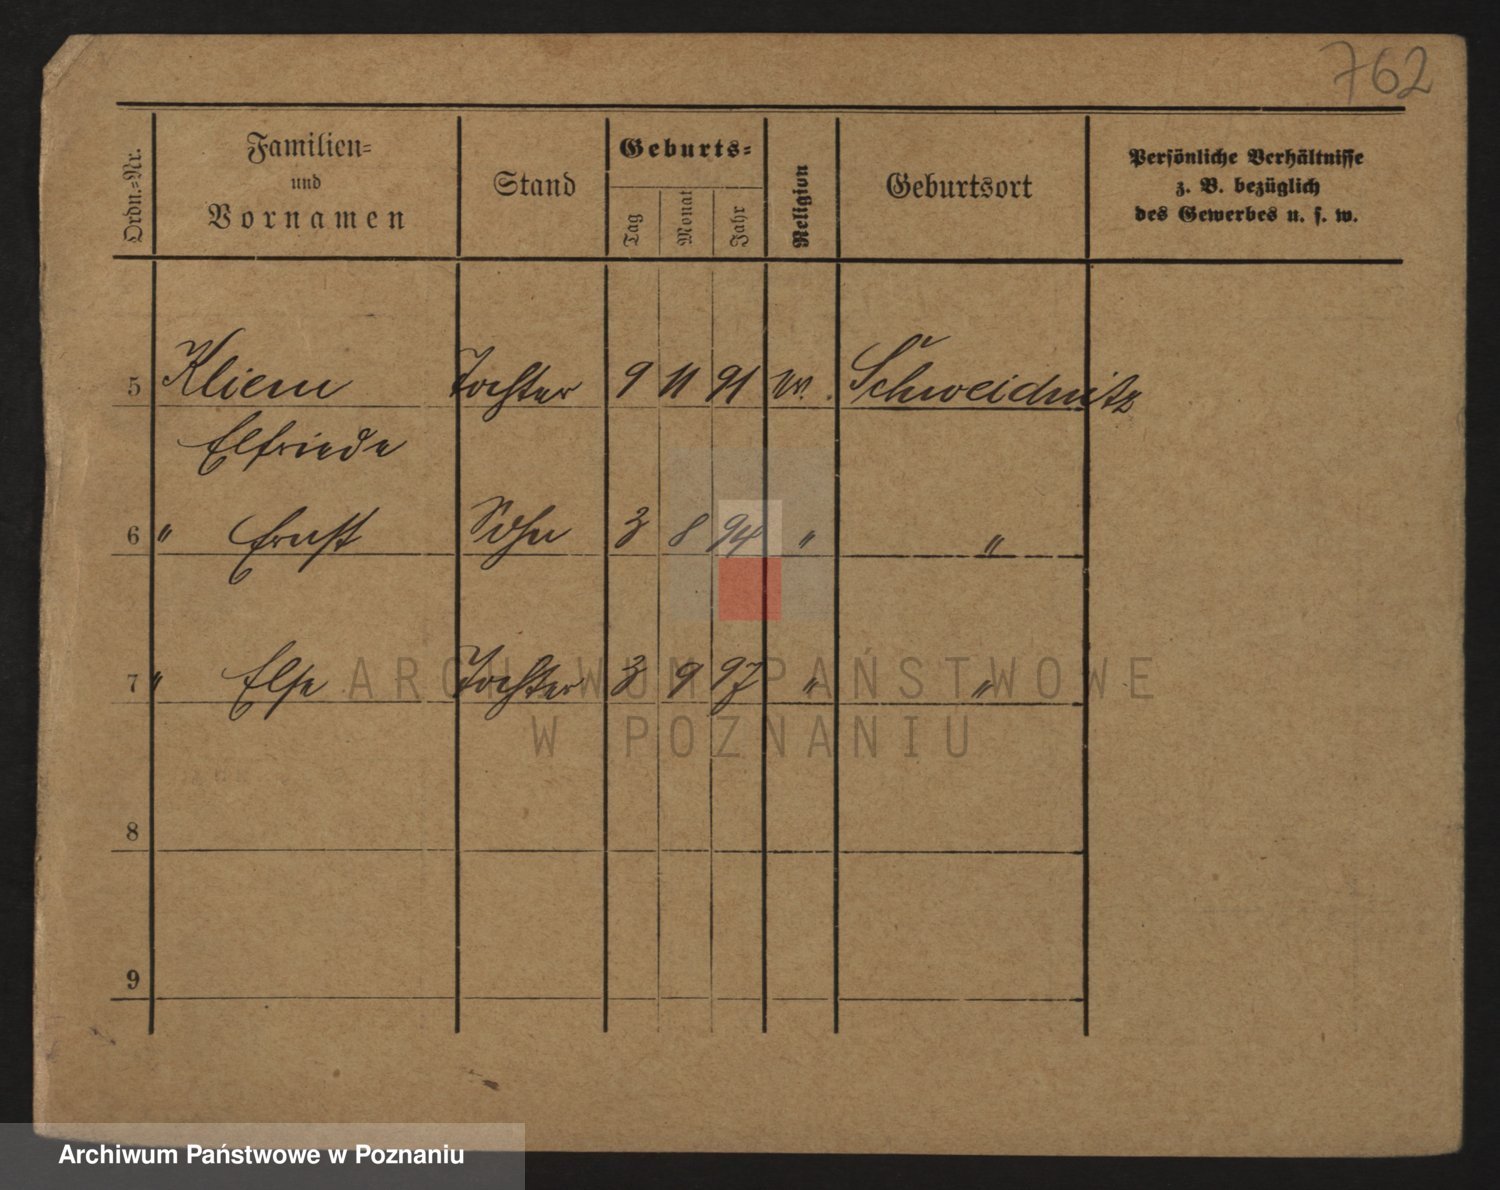 762
Ordn.=Nr.
Familien=
und
Vornamen
Stand
Geburts=
Tag
Monat
Jahr
Religion
Geburtsort
Persönliche Verhältnisse
z. B. bezüglich
des Gewerbes u. s. w.
5 Kliem Tochter 9 11 91 Schweidnitz
Elfriede
6 " Ernst Sohn 3 8 94 " "
7 " Else Tochter 3 9 97 " "
8
9
ARCHIWUM PAŃSTWOWE
W POZNANIU
Archiwum Państwowe w Poznaniu